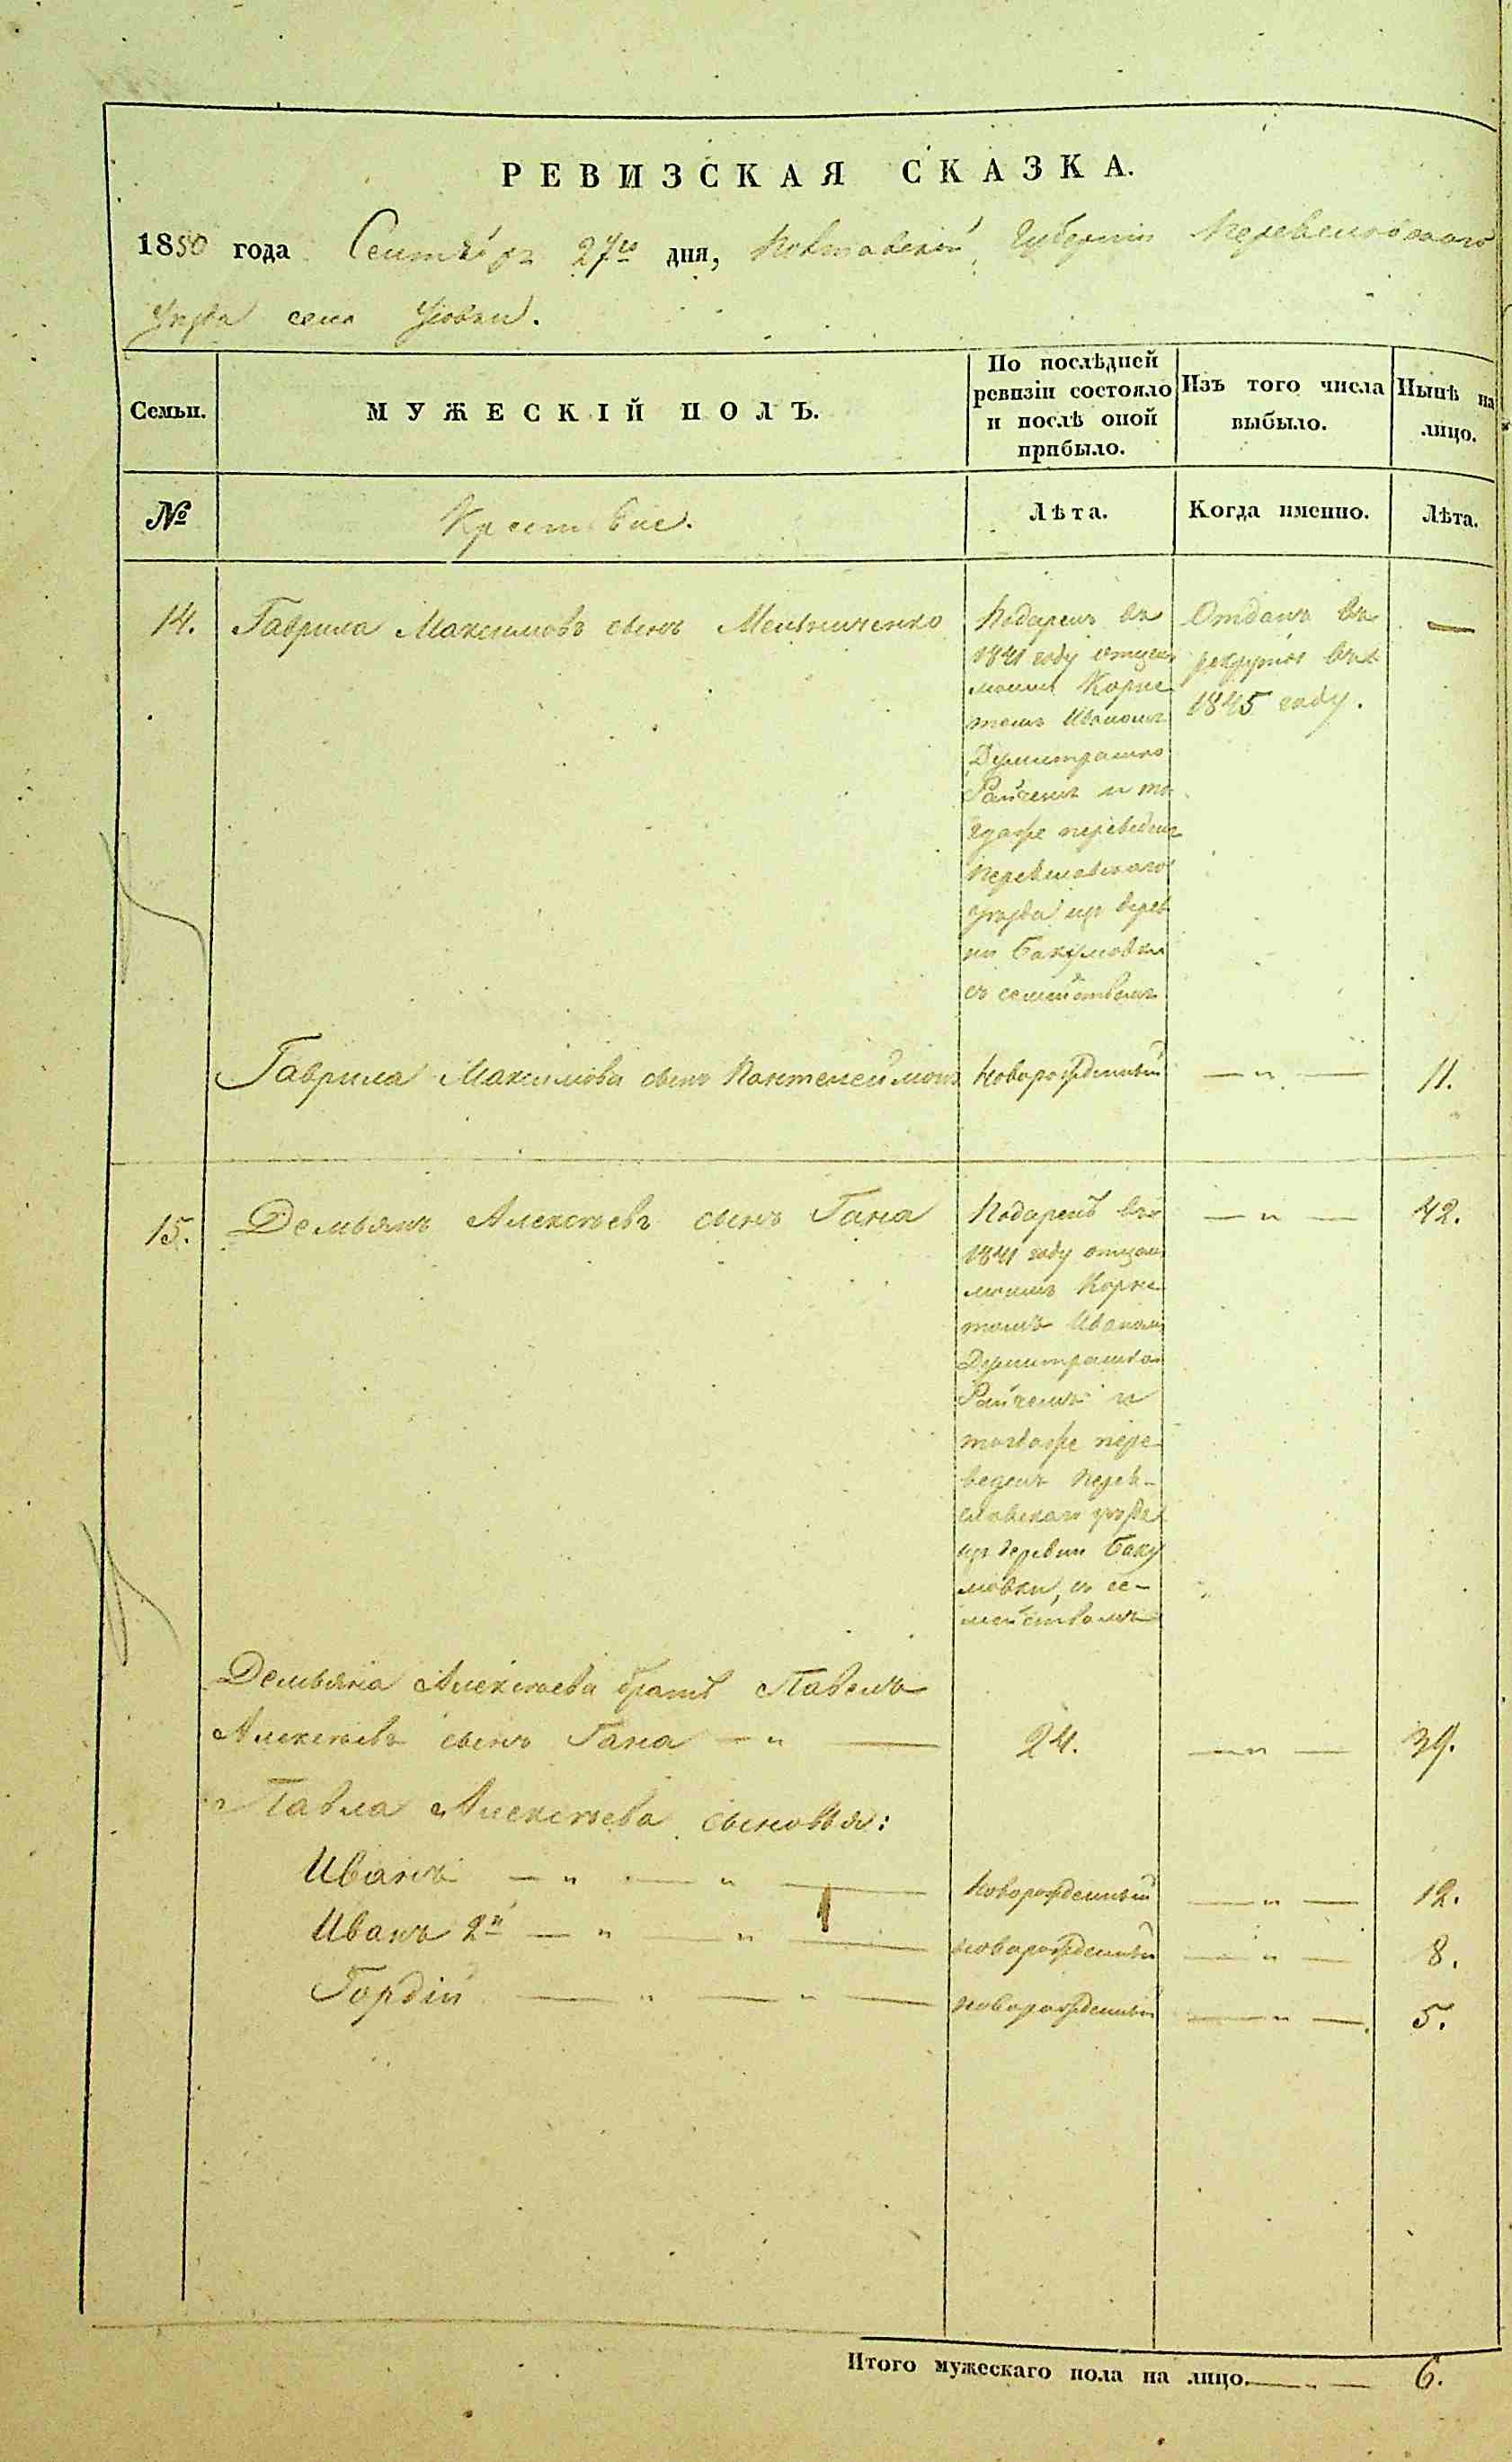 РЕВИЗСКАЯ СКАЗКА.
1850 года Сентября 27го дня, Полтавской Губерніи Переяславскаго
уѣзда села
Семьи.
МУЖЕСКІЙ ПОЛЪ.
По послѣдней
ревизіи состояло
и послѣ оной
прибыло.
Изъ того числа
выбыло.
Нынѣ на
лицо.
№
Крестьяне.
Лѣта.
Когда именно.
Лѣта.
14.
Гаврила Максимовъ сынъ Мельниченко
Подаренъ въ
1841 году отцемъ
моимъ Корне-
томъ Иваномъ
Думитрашко
Райчемъ и то-
гдаже переведенъ
Переяславскаго
уѣзда изъ дерев
ни Бакумовки
съ семействомъ
Отданъ въ
рекруты въ
1845 году.
—
Гаврила Максимова сынъ Пантелеймонъ
Новорожденный
— „ —
11.
15.
Демьянъ Алексѣевъ сынъ Гана
Подаренъ въ
1841 году отцемъ
моимъ Корне-
томъ Иваномъ
Думитрашко
Райчемъ и
тогдаже пере-
веденъ Перея-
славскаго уѣзда
изъ деревни Баку
мовки, съ се-
мействомъ
— „ —
42.
Демьяна Алексѣева братъ Павелъ
Алексѣевъ сынъ Гана — „ —
24.
— „ —
39.
Павла Алексѣева сыновья:
Иванъ — „ — „ —
Новорожденный
— „ —
12.
Иванъ 2й — „ — „ —
новорожденный
— „ —
8.
Гордій — „ — „ —
новорожденный
— „ —
5.
Итого мужескаго пола на лицо. — „ — 6.